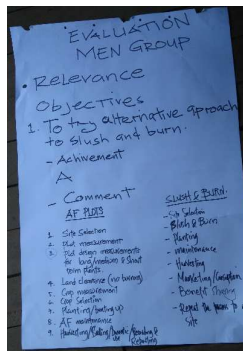 EVALUATION
MEN GROUP
• Relevance
Objectives
1. To try alternative aproach
to slush and burn.
- Achivement
A
- Comment
AF PLOTS
1. Site Selection
2. Plot measurement
3. Plot design measurements
for long/medium & short
term plants.
4. Land clearance (no burning)
5. Gap measurement
6. Crop Selection
7. Planting/beating up
8. AF maintenance
9. Harvesting/
SLUSH & BURN.
- Site Selection
- Slush & Burn
- Planting
- maintenance
- Harvesting
- Marketing/
- Benefit Sharing
- Repeat the process to a
Site